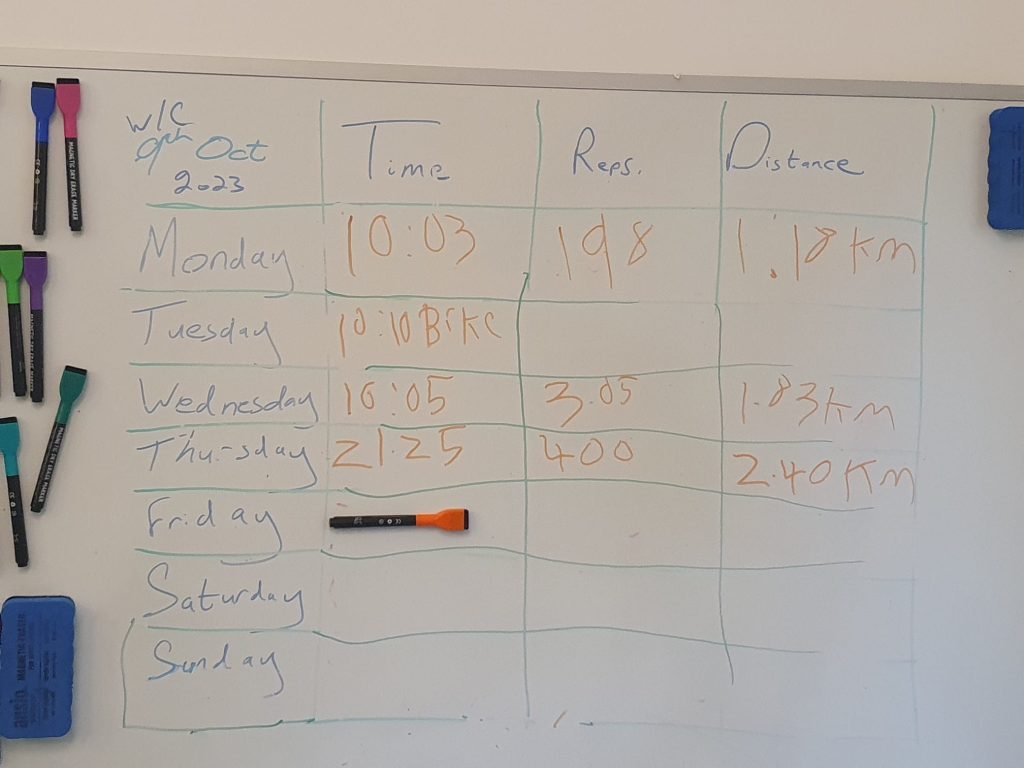 W/C
9th Oct
2023
Time Reps. Distance
Monday 10:03 198 1.18 km
Tuesday 10:10 Bike
Wednesday 10:05 3.05 1.83 km
Thursday 21.25 400 2.40 km
Friday
Saturday
Sunday
MAGNETIC DRY ERASE MARKER
MAGNETIC DRY ERASE MARKER
MAGNETIC ERASER